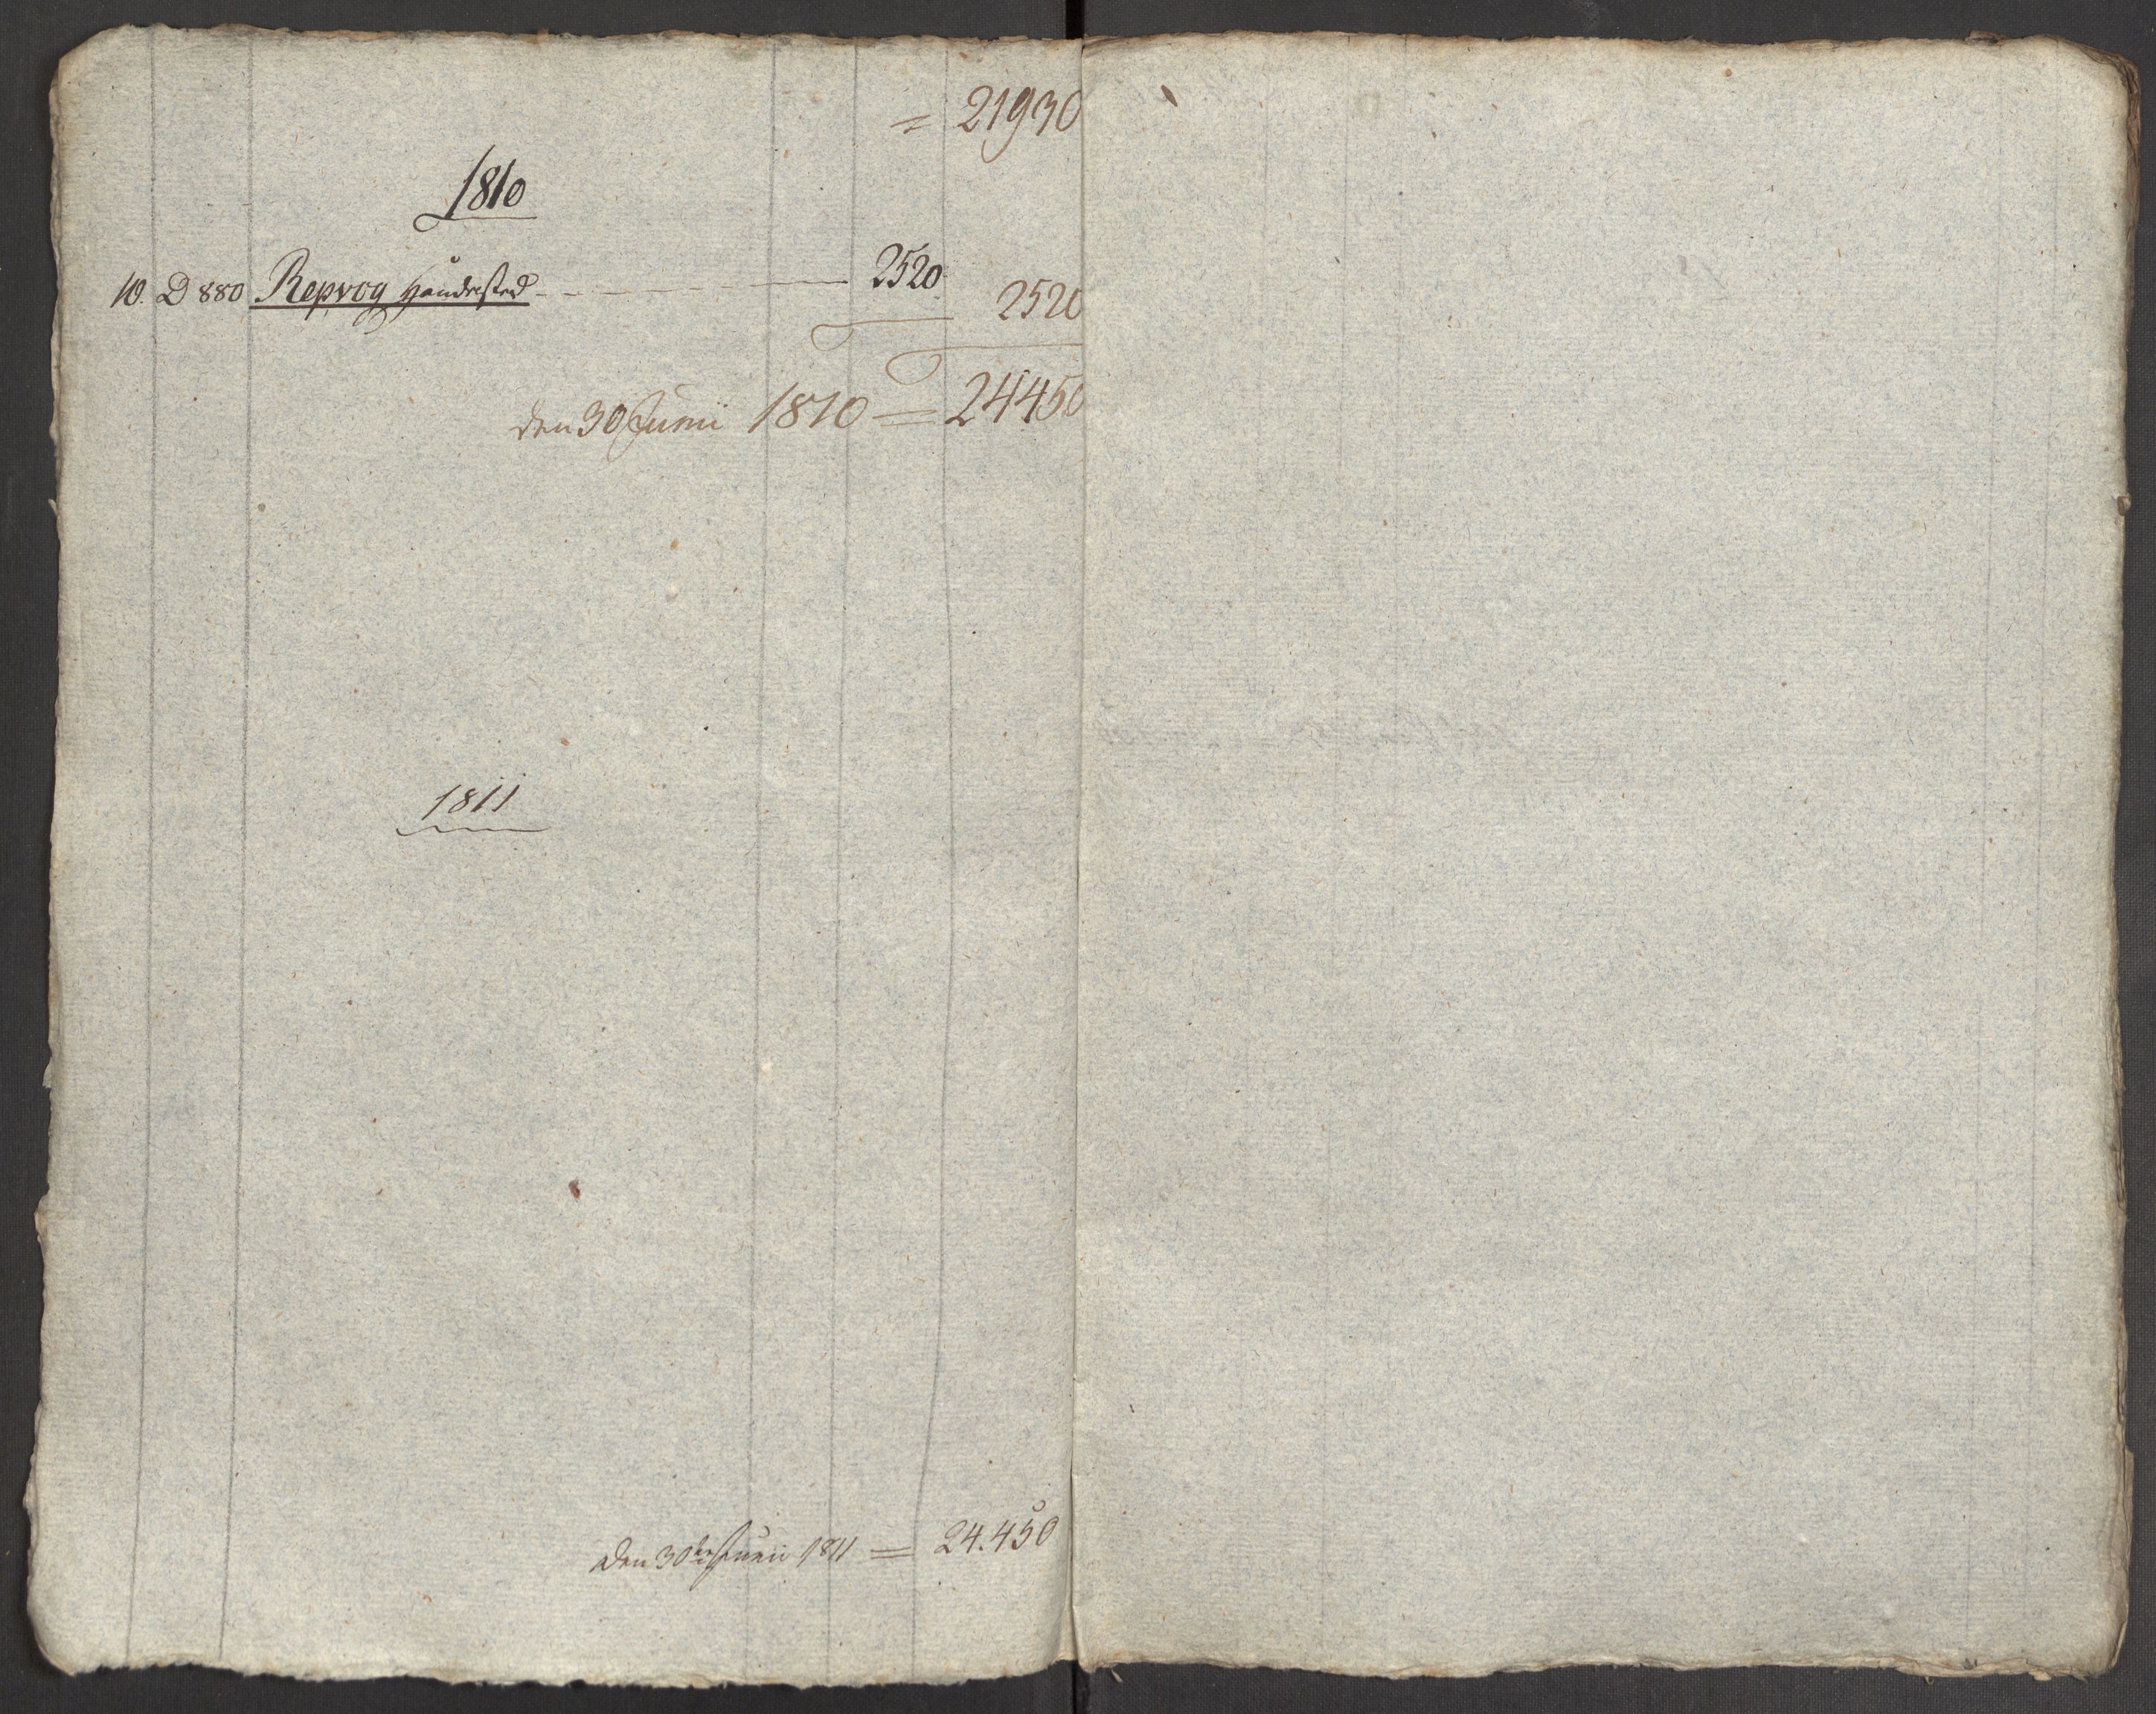 = 21930
1810
10. D 880 Repvog Handelsted - - - - - 2520
2520
den 30 Junii 1810 = 24450
1811
den 30te Junii 1811 = 24.450